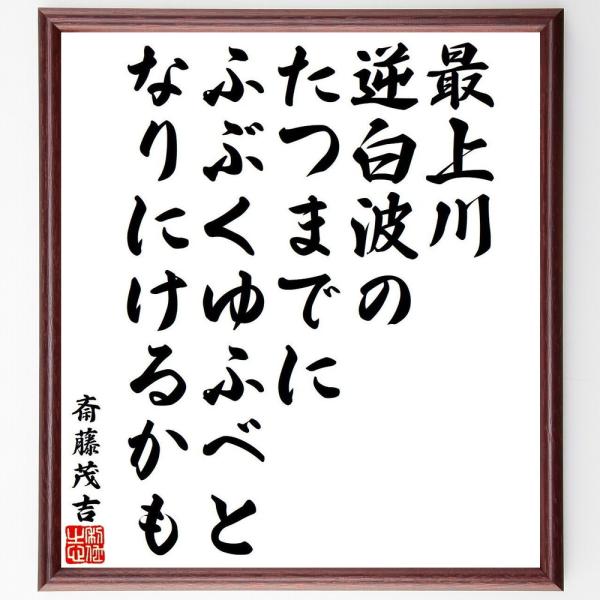 最上川
逆白波の
たつまでに
ふぶくゆふべと
なりにけるかも
斎藤茂吉